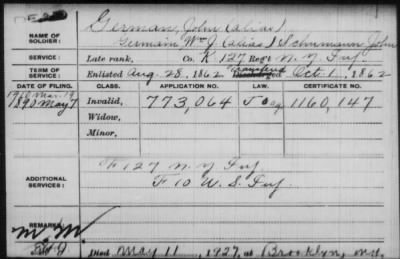 NAME OF SOLDIER:
German, John (alias)
Germain Wm J. (alias) Schumann John
SERVICE:
Late rank, Co. K. 127 Reg't N. Y. Inf.
TERM OF SERVICE:
Enlisted Aug. 28, 1862 Transferred Discharged Oct. 1, 1862
DATE OF FILING. CLASS. APPLICATION NO. LAW. CERTIFICATE NO.
1910 Mar. 19
1890 May 7 Invalid, 773,064 1160,147
Widow,
Minor,
ADDITIONAL SERVICES:
127 N. Y. Inf
F 10 U. S. Inf
REMARKS:
Died May 11, 1927, at Brooklyn,